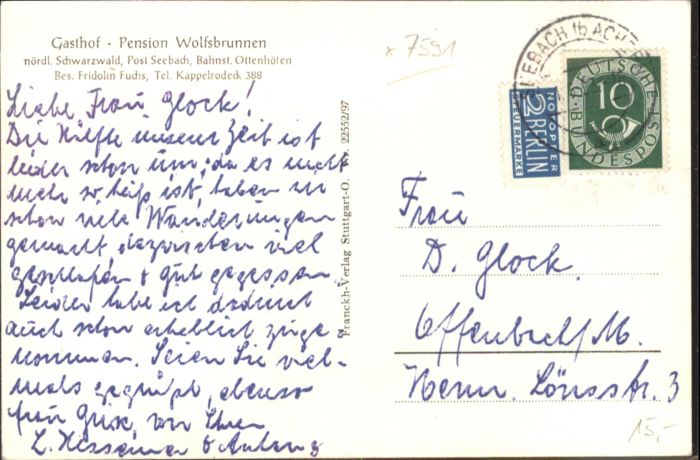 Gasthof - Pension Wolfsbrunnen
nördl. Schwarzwald, Post Seebach, Bahnst. Ottenhöfen
Bes. Fridolin Fuchs, Tel. Kappelrodeck 388
Liebe Frau Glock!
Die Hälfte unserer Zeit ist
leider schon um; da es nicht
mehr so heiß ist, haben wir
schon viele Wanderungen
gemacht, dazwischen viel
geschlafen & gut gegessen.
Leider habe ich dadurch
auch schon erheblich zuge-
nommen. Seien Sie viel-
mals gegrüßt, ebenso
von Ihren
L.
Franckh-Verlag Stuttgart-O. Nr. 22552/97
x 7591
SEEBACH (b ACHERN
NOTOPFER
2 BERLIN
STEUERMARKE
DEUTSCHE
10
BUNDESPOST
Frau
D. Glock
Offenbach/M.
Herm. Lönsstr. 3
15,-